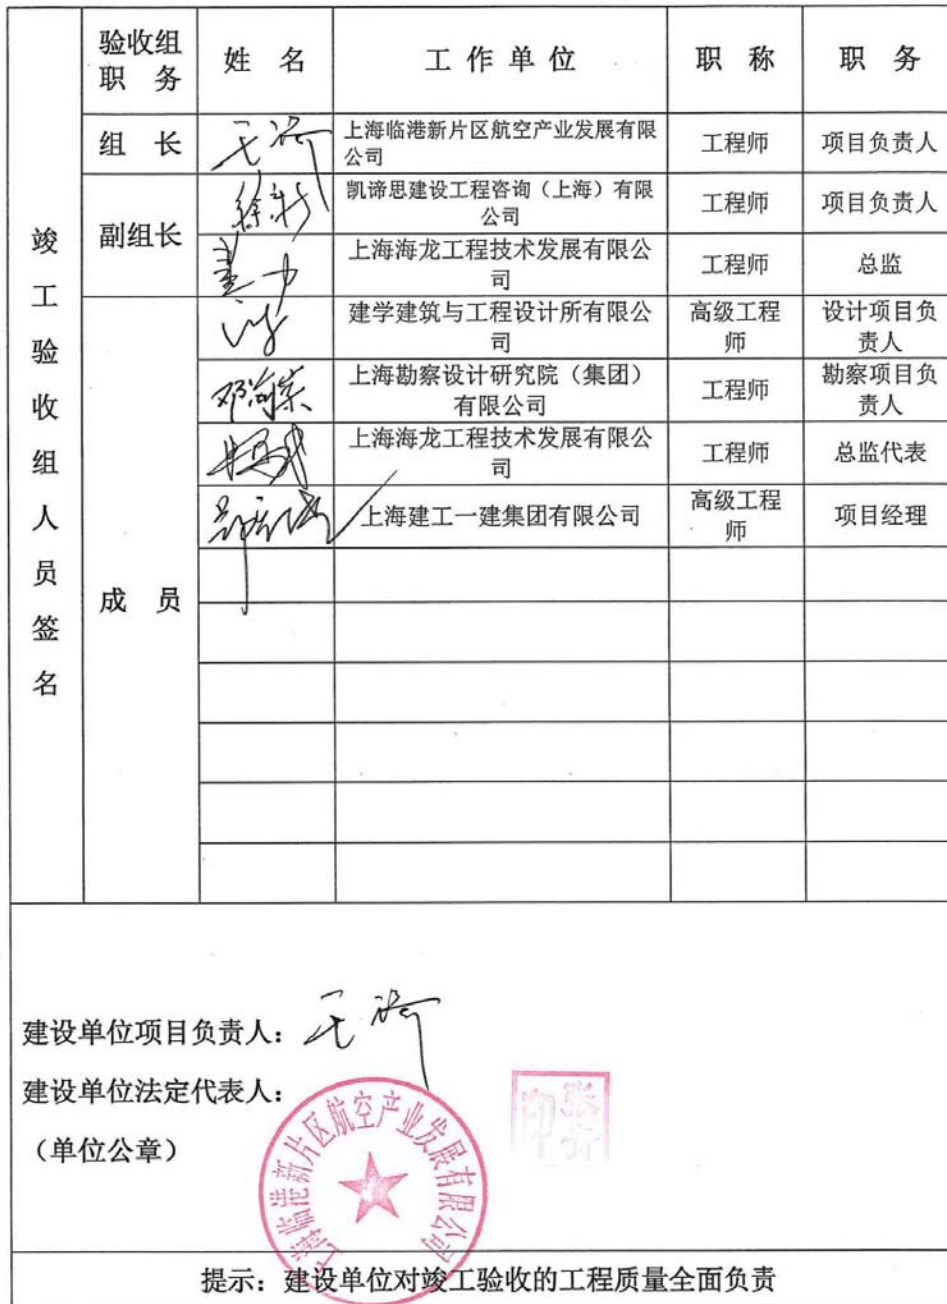 验收组
职 务
姓 名
工 作 单 位
职 称
职 务
竣工验收组人员签名
组 长
上海临港新片区航空产业发展有限
公司
工程师
项目负责人
副组长
凯谛思建设工程咨询（上海）有限
公司
工程师
项目负责人
上海海龙工程技术发展有限公
司
工程师
总监
成 员
建学建筑与工程设计所有限公
司
高级工程
师
设计项目负
责人
上海勘察设计研究院（集团）
有限公司
工程师
勘察项目负
责人
上海海龙工程技术发展有限公
司
工程师
总监代表
上海建工一建集团有限公司
高级工程
师
项目经理
建设单位项目负责人：
建设单位法定代表人：
（单位公章）
上海临港新片区航空产业发展有限公司
提示：建设单位对竣工验收的工程质量全面负责